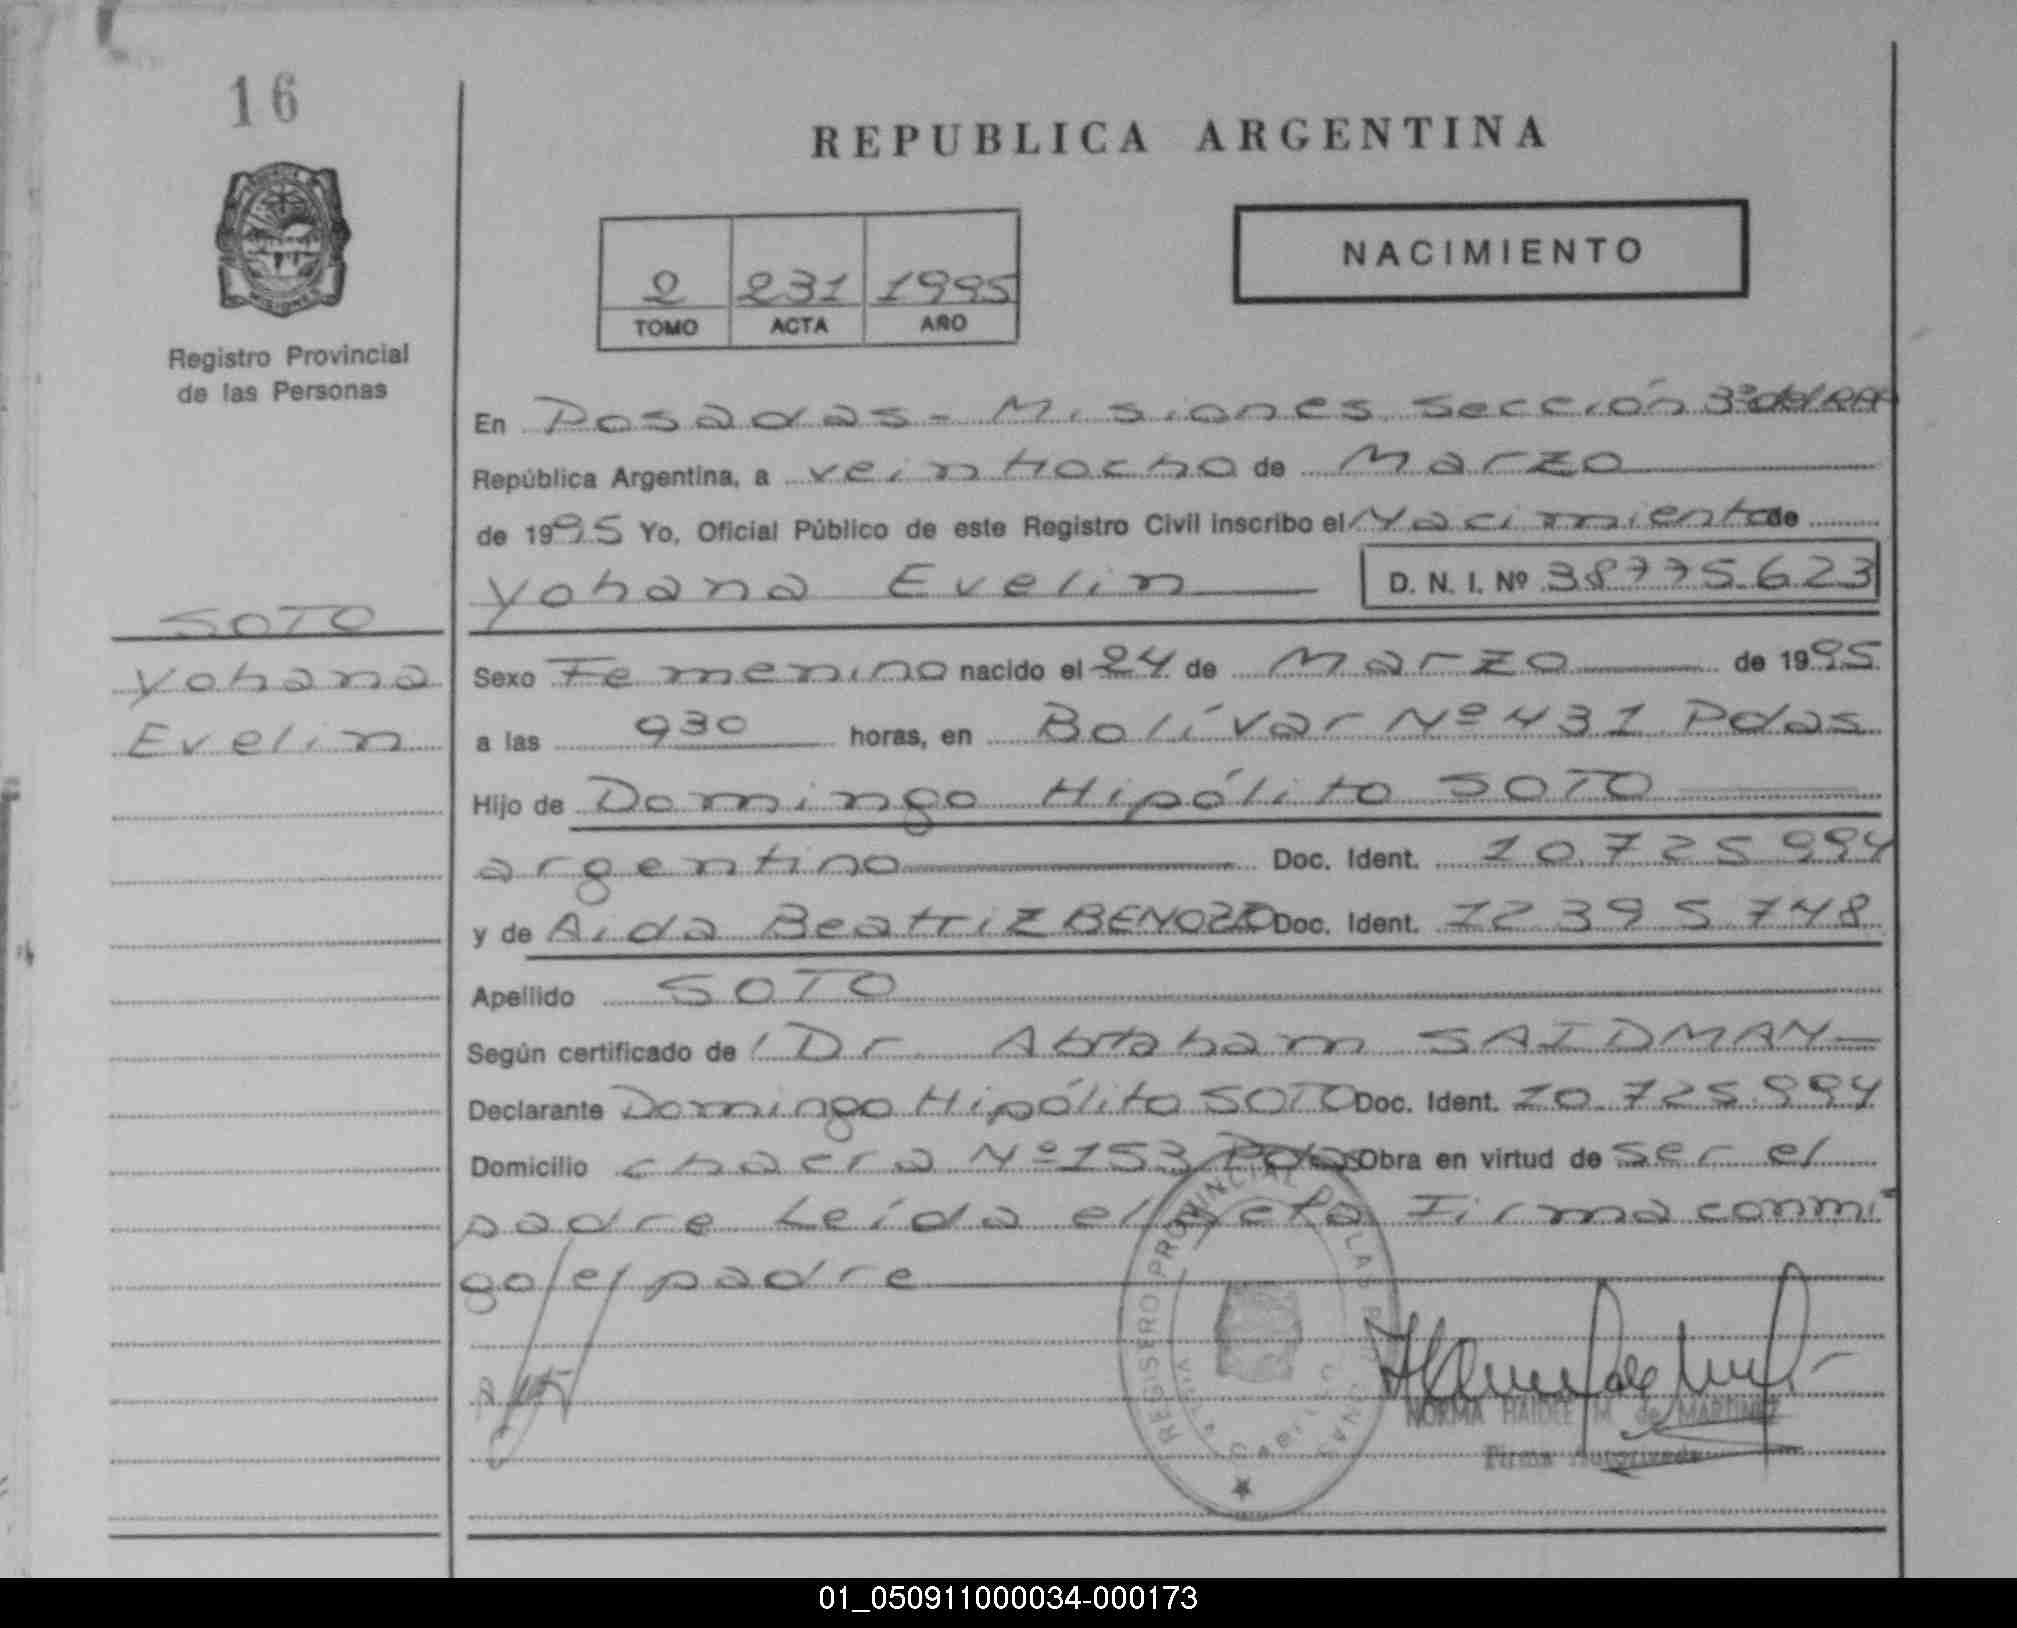 16
REPUBLICA ARGENTINA
NACIMIENTO
2 231 1995
TOMO ACTA AÑO
Registro Provincial
de las Personas
En Posadas - Misiones Sección 3ª del
República Argentina, a veintiocho de Marzo
de 1995 Yo, Oficial Público de este Registro Civil inscribo el Nacimiento de
Yohana Evelin D. N. I. Nº 38775623
SOTO
Yohana
Evelin
Sexo Femenino nacido el 24 de Marzo de 1995
a las 930 horas, en Bolívar Nº 431 Pdas
Hijo de Domingo Hipólito SOTO
argentino Doc. Ident. 10725994
y de Aida Beatriz Doc. Ident. 12395748
Apellido SOTO
Según certificado de Dr Abraham SAIDMAN
Declarante Domingo Hipólito SOTO Doc. Ident. 10.725.994
Domicilio chacra Nº 153 Pdas Obra en virtud de ser el
padre Leída el acta Firma conmi
go el padre
REGISTRO PROVINCIAL DE LAS
NORMA HAIDEE M. de MARTINEZ
Firma Autorizada
01_050911000034-000173